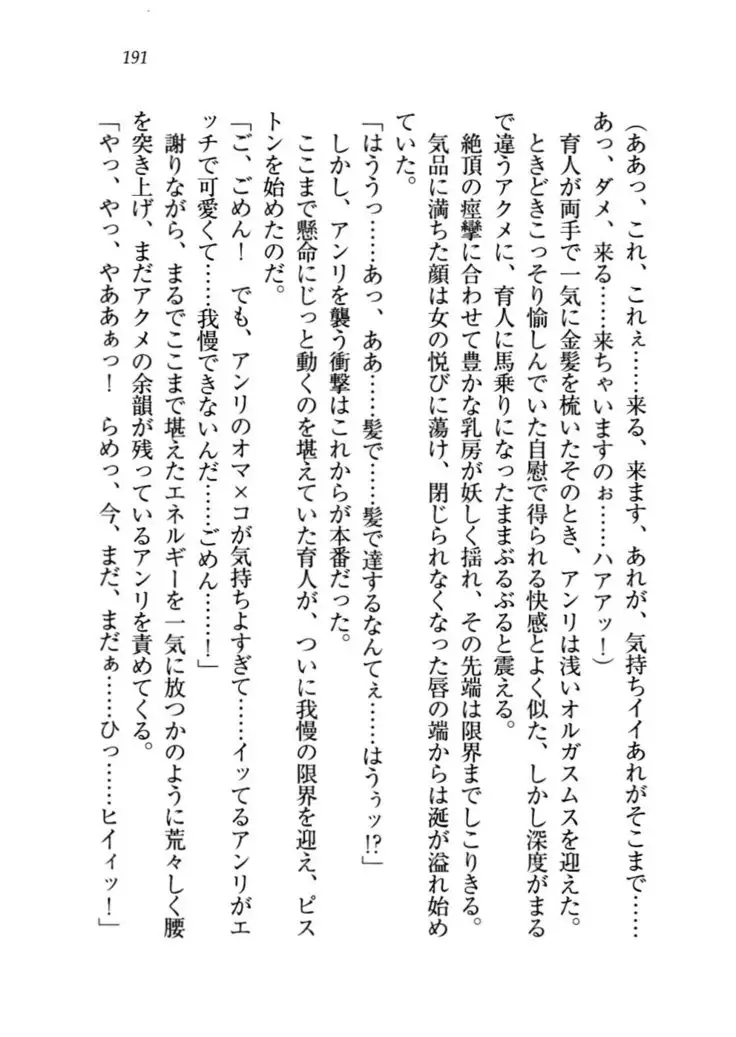 191
(ああっ、これ、これぇ……来る、来ます、あれが、気持ちイイあれがそこまで……
あっ、ダメ、来る……来ちゃいますのぉ……ハアアッ!)
育人が両手で一気に金髪を梳いたそのとき、アンリは浅いオルガスムスを迎えた。
ときどきこっそり愉しんでいた自慰で得られる快感とよく似た、しかし深度がまる
で違うアクメに、育人に馬乗りになったままぶるぶると震える。
絶頂の痙攣に合わせて豊かな乳房が妖しく揺れ、その先端は限界までしこりきる。
気品に満ちた顔は女の悦びに蕩け、閉じられなくなった唇の端からは涎が溢れ始め
ていた。
「はううっ……あっ、ああ……髪で……髪で達するなんてぇ……はうぅッ!?」
しかし、アンリを襲う衝撃はこれからが本番だった。
ここまで懸命にじっと動くのを堪えていた育人が、ついに我慢の限界を迎え、ピス
トンを始めたのだ。
「ご、ごめん! でも、アンリのオマ×コが気持ちよすぎて……イッてるアンリがエ
ッチで可愛くて……我慢できないんだ……ごめん……!」
謝りながら、まるでここまで堪えたエネルギーを一気に放つかのように荒々しく腰
を突き上げ、まだアクメの余韻が残っているアンリを責めてくる。
「やっ、やっ、やああぁっ! らめっ、今、まだ、まだぁ……ひっ……ヒイィッ!」